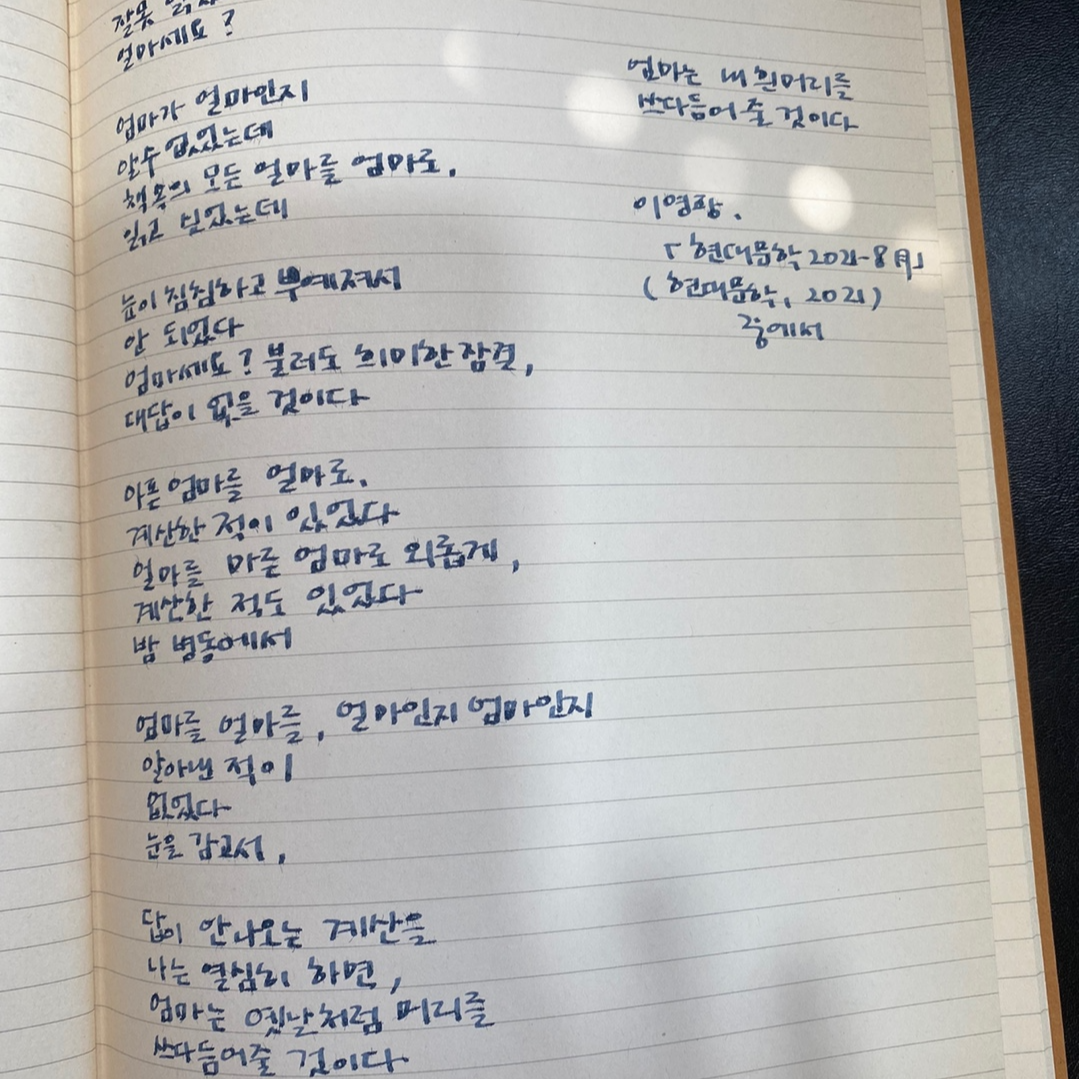 잘못
얼마세요?
엄마가 얼마인지
알수 없었는데
책속의 모든 얼마를 엄마로,
읽고 싶었는데
눈이 침침하고 뿌예져서
안 되었다
엄마세요? 불러도 희미한 잠결,
대답이 없을 것이다
아픈 엄마를 얼마로,
계산한 적이 있었다
얼마를 마른 엄마로 외롭게,
계산한 적도 있었다
밤 병동에서
엄마를 얼마를, 얼마인지 엄마인지
알아낸 적이
없었다
눈을 감고서,
답이 안나오는 계산을
나는 열심히 하면,
엄마는 옛날처럼 머리를
쓰다듬어줄 것이다
엄마는 내 흰머리를
쓰다듬어 줄 것이다
이영광.
「현대문학 2021-8月」
(현대문학, 2021)
중에서